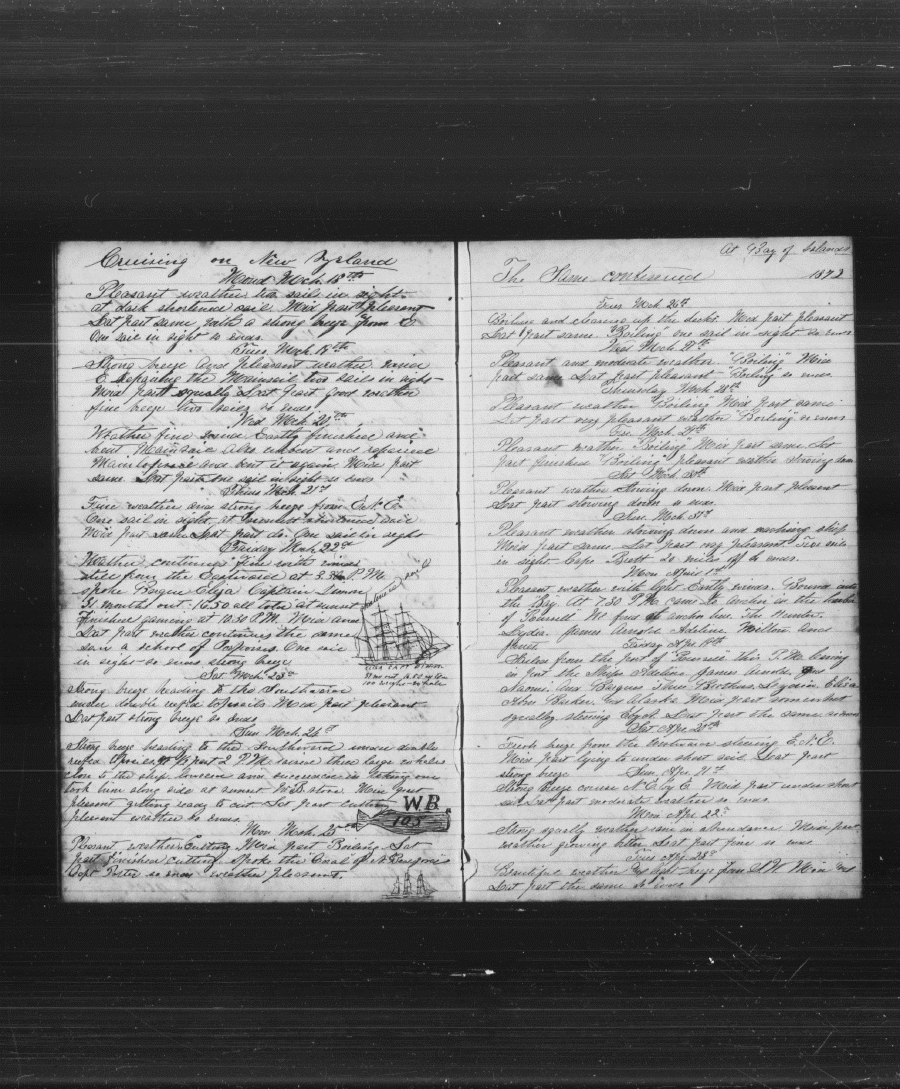 Cruising on New Zealand
Mond Mch. 18th
Pleasant weather two sails in sight
at dark shortened sail. Mid part pleasant
Lat part same with a strong breeze from E
One sail in sight so ends.
Tues Mch. 19th
Strong breeze and pleasant weather wind
E repairing the Mainsail two sails in sight
Mid part squally Lat part good weather
fine breeze two sails so ends
Wed Mch. 20th
Weather fine some Squally finished and
bent Mainsail also unbent and repaired
Main topsail and bent it again Mid part
same. Lat part one sail in sight so ends
Thurs Mch. 21st
Fine weather and strong breeze from E.N.E.
One sail in sight, at sunset shortened sail
Mid part same Lat part do. One sail in sight
Friday Mch. 22d
Weather continues fine with wind
still from the Eastward at 3.30 P.M.
spoke Barque Eliza Captain
31 months out. 1650 all told at sunset
finished gaming at 10.30 P.M. Mid and
Lat part weather continues the same
saw a school of Porpoises. One sail
in sight so ends strong breeze
ELIZA CAPT
31 mos out
Sat Mch. 23d
Strong breeze heading to the Southward
under double reefed topsails Mid part pleasant
Lat part strong breeze so ends
Sun Mch. 24th
Strong breeze heading to the Southward under double
reefed topsails, at part 2 P.M. raised three large whales
close to the ship lowered and succeeded in taking one
took him along side at sunset Mid part
pleasant getting ready to cut Lat part cutting
pleasant weather so ends.
WB
105
Mon Mch. 25th
Pleasant weather Cutting Mid part Boiling Lat
part finished Cutting. Spoke the Coral of N Bedford
Capt so ends weather pleasant.
At Bay of Islands
The Same continued 1872
Tues Mch. 26th
Boiling and cleaning up the decks. Mid part pleasant
Lat part same. "Boiling" one sail in sight so ends
Wed Mch. 27th
Pleasant and moderate weather. "Boiling" Mid
part same Lat part pleasant "Boiling" so ends.
Thursday Mch. 28th
Pleasant weather "Boiling" Mid part same
Lat part very pleasant weather "Boiling" so ends
Fri Mch. 29th
Pleasant weather "Boiling" Mid part same. Lat
part finished "Boiling" pleasant weather stowing down
Sat Mch. 30th
Pleasant weather stowing down. Mid part pleasant
Lat part stowing down so ends.
Sun. Mch. 31st
Pleasant weather stowing down and washing ship
Mid part same. Lat part very pleasant. Two sails
in sight. Cape Brett miles off so ends.
Mon April 1st
Pleasant weather with light Easterly winds. Bound into
the Bay. At 7.30 P.M. came to anchor in the harbor
of Russell. We find at anchor here. The
Lydia, James Arnold Adeline Milton and
James.
Friday Apr 19th
Sailed from the port of Russell this P.M. leaving
in port the Ships Adeline James Arnold,
Naomi, and Barques Two Brothers, Lydia, Eliza
Abm Barker and Alaska. Mid part somewhat
squally steering Lat part the same so ends
Sat Apr. 20th
Fresh breeze from the Westward steering E.N.E.
Mid part lying to under short sail. Lat part
strong breeze
Sun. Apr. 21st
Strong breeze course N.E. by E. Mid part under short
sail Lat part moderate weather so ends.
Mon Apr. 22d
Strong squally weather rain in abundance. Mid part
weather growing better Lat part fine so ends
Tues Apr. 23d
Beautiful weather light breeze from S.W. Mid and
Lat part the same so ends